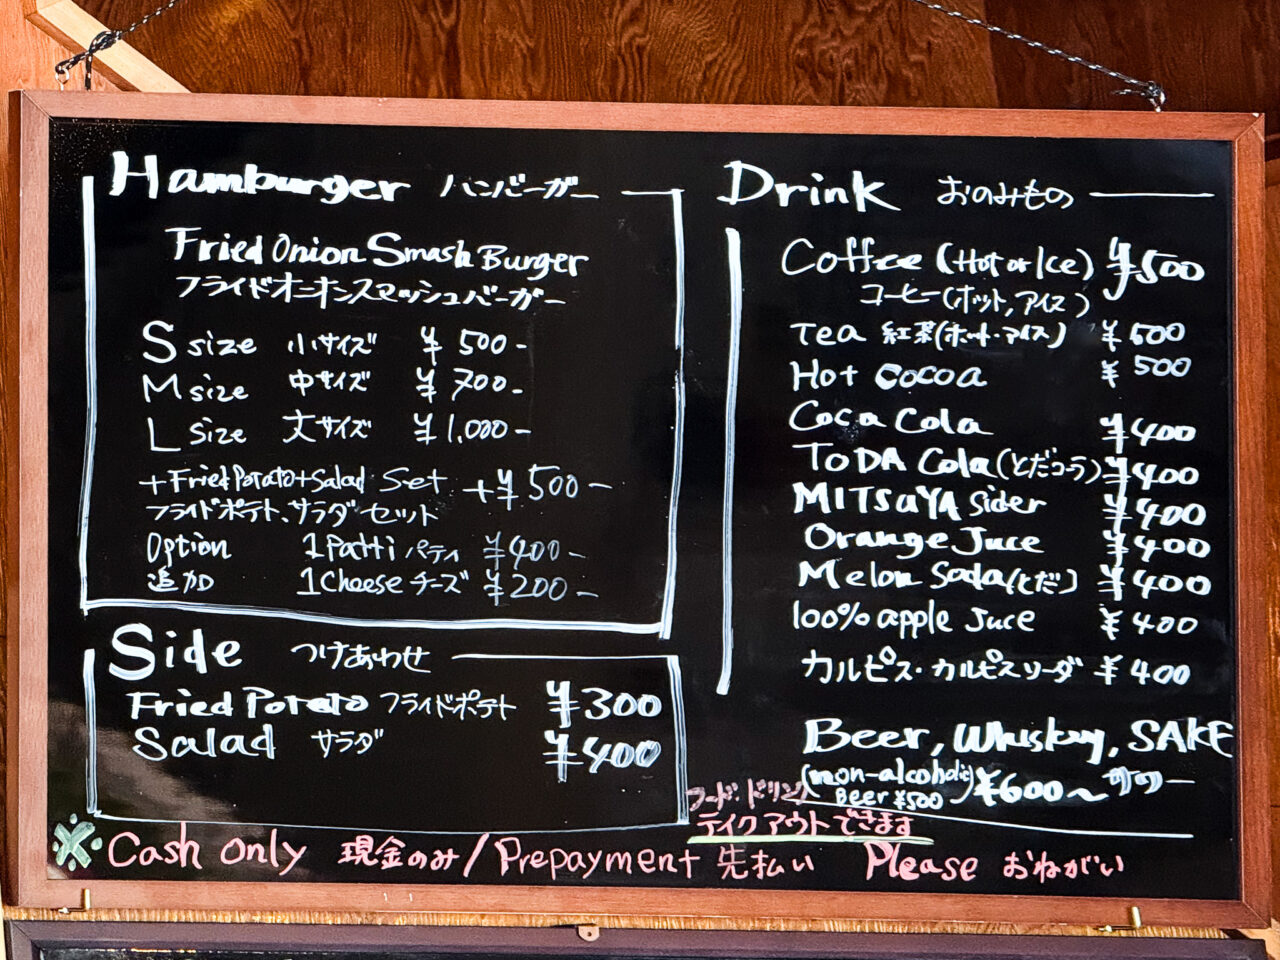 Hamburger ハンバーガー
Fried Onion Smash Burger
フライドオニオンスマッシュバーガー
S size 小サイズ ¥500-
M size 中サイズ ¥700-
L size 大サイズ ¥1,000-
+Fried Potato+Salad Set +¥500-
フライドポテト、サラダセット
Option 1 Patti パティ ¥400-
追加 1 Cheese チーズ ¥200-
Side つけあわせ
Fried Potato フライドポテト ¥300
Salad サラダ ¥400
Drink おのみもの
Coffee (Hot or Ice) ¥500
コーヒー(ホット,アイス)
Tea 紅茶(ホット・アイス) ¥500
Hot cocoa ¥500
Coca Cola ¥400
TODA Cola(とだコーラ) ¥400
MITSUYA Sider ¥400
Orange Juce ¥400
Melon Soda(とだ) ¥400
100% apple Juce ¥400
カルピス・カルピスソーダ ¥400
Beer, Whiskey, SAKE
(non-alcoholic Beer ¥500) ¥600~ サワー
フード・ドリンク
テイクアウトできます
※Cash only 現金のみ/Prepayment 先払い Please おねがい